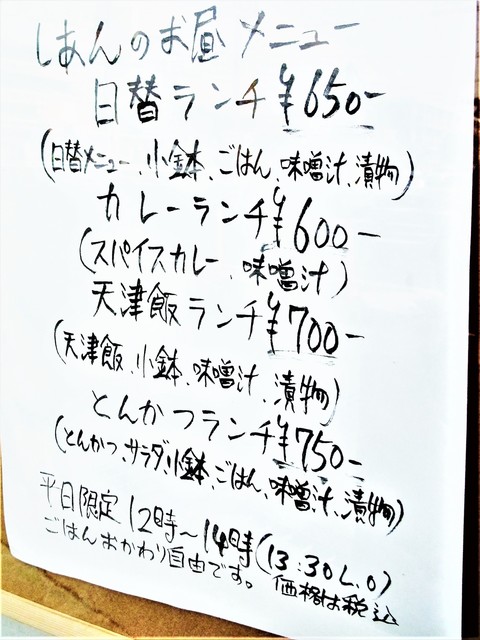 しあんのお昼メニュー
日替ランチ¥650-
(日替メニュー、小鉢、ごはん、味噌汁、漬物)
カレーランチ¥600-
(スパイスカレー、味噌汁)
天津飯ランチ¥700-
(天津飯、小鉢、味噌汁、漬物)
とんかつランチ¥750-
(とんかつ、サラダ、小鉢、ごはん、味噌汁、漬物)
平日限定 12時〜14時(13:30L.O)
ごはんおかわり自由です。 価格は税込